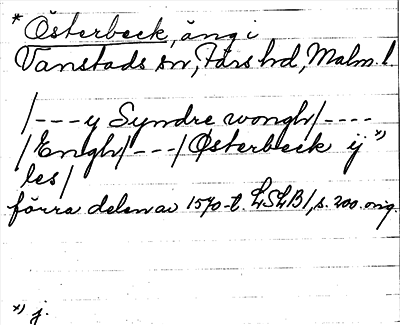 * Österbeck, äng i
Vanstads sn, Färs hd, Malm. l.
/---y Syndre wongh/----
/Engh/---/Østerbeck ij *)
les/
förra delen av 1570-t. LSLB1, s. 200. orig.
*) j.